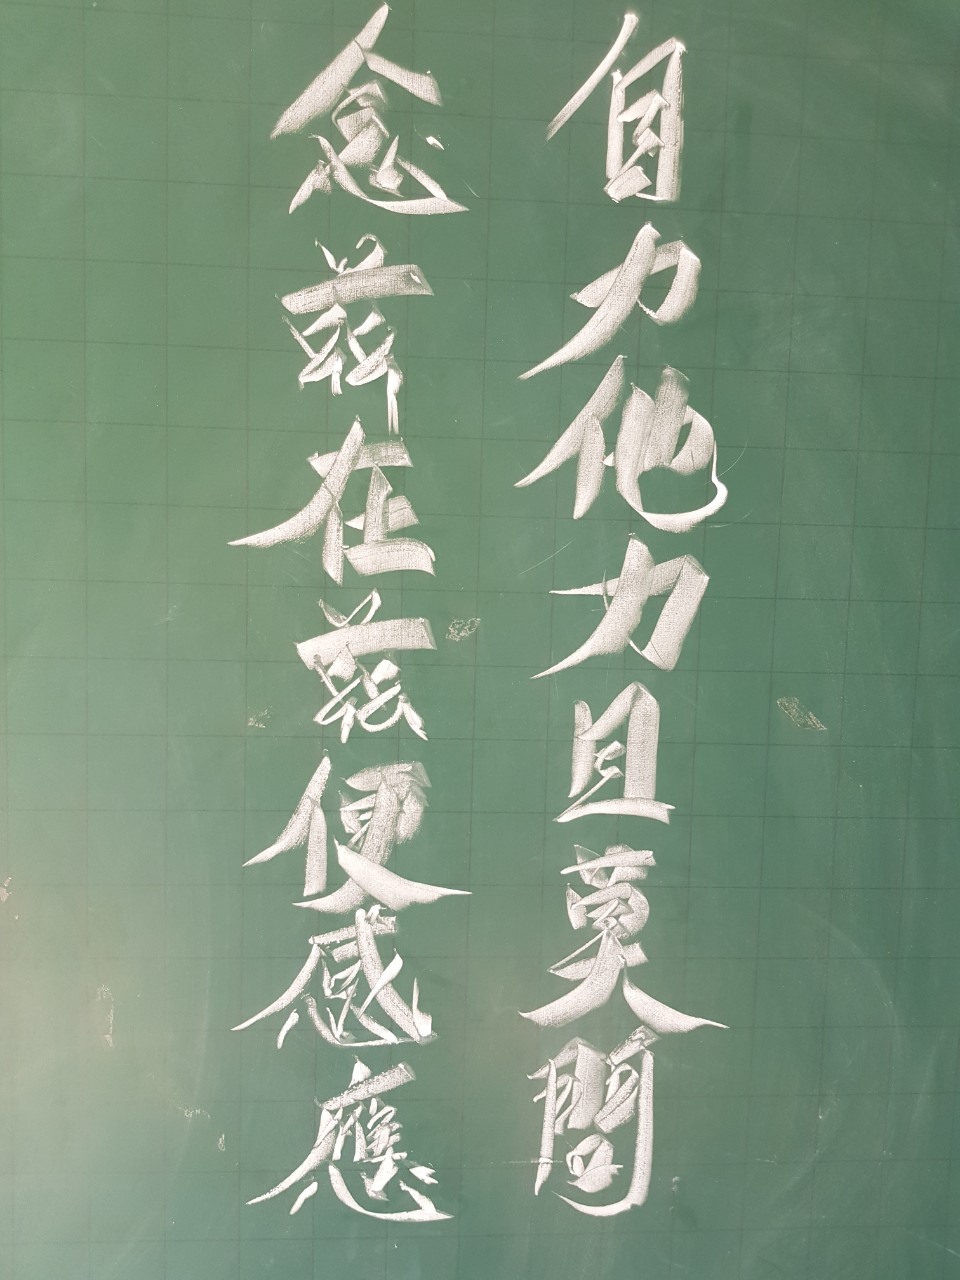 自力他力且莫問
念茲在茲便感應